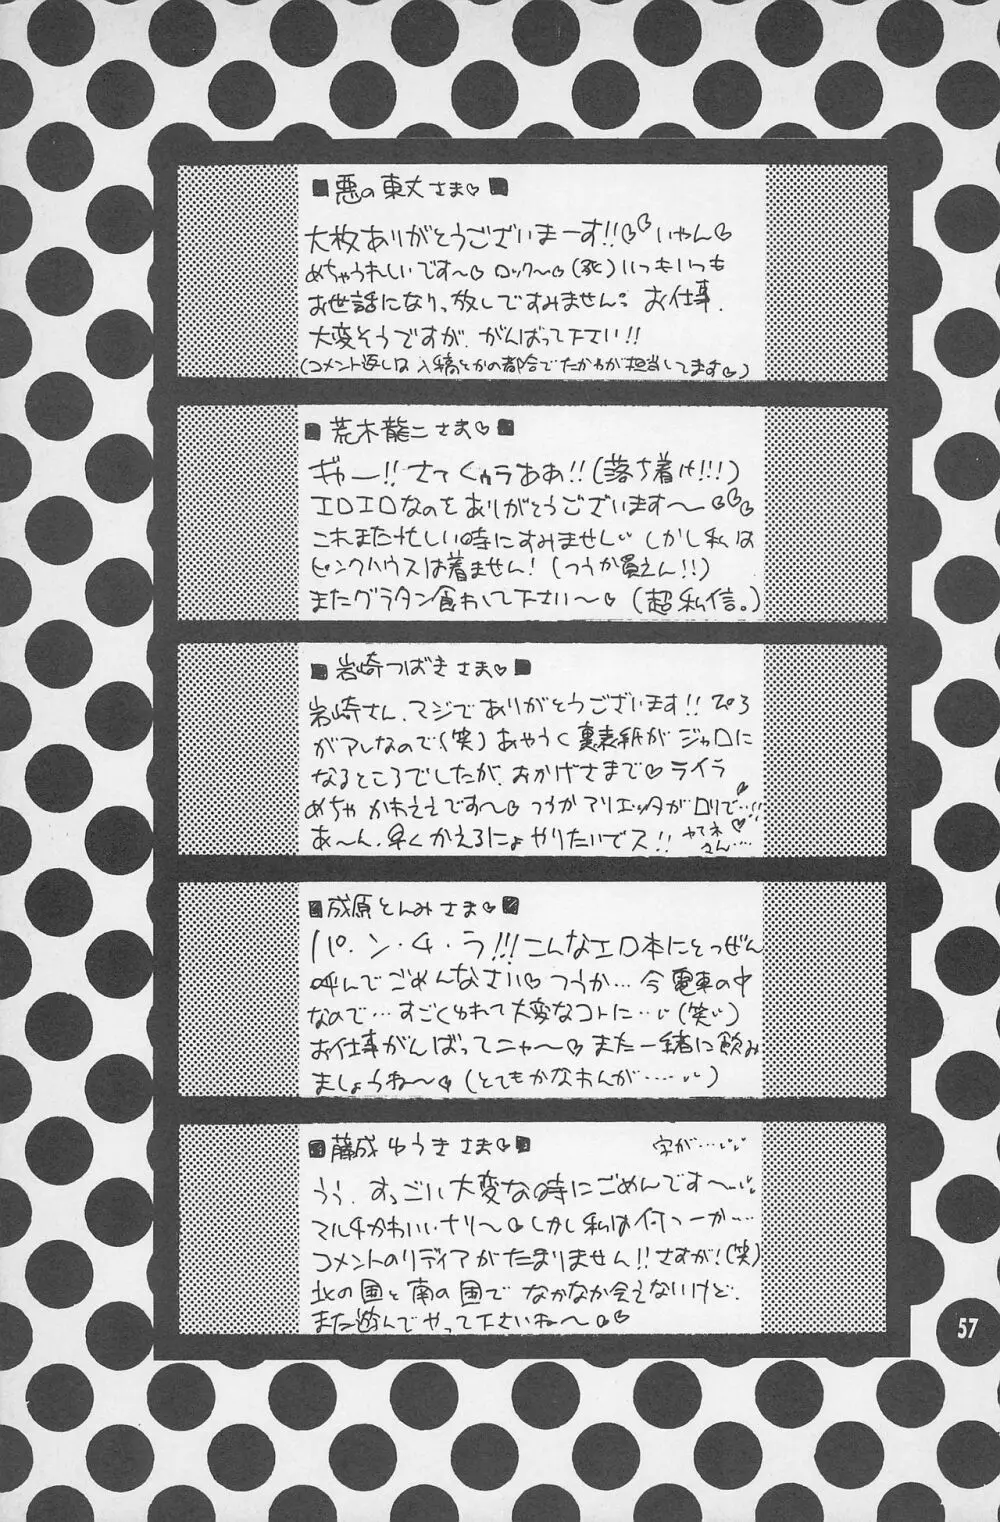 ■悪の東丈さま♡■
大枚ありがとうございまーす!!♡♡いやん♡
めちゃうれしいです〜♡ロック〜♡(死)いつもいつも
お世話になりっ放しですみません。お仕事、
大変そうですが、がんばって下さい!!
(コメント返しは入稿とかの都合でたかやが担当してます♡)
■荒木龍二さま♡■
ギャー!!さてくぅラああ!!(落ち着け!!!)
エロエロなのをありがとうございます〜♡♡♡
これまた忙しい時にすみません〃しかし私は
ピンクハウスは着ません!(つうか買えん!!)
またグラタン食わして下さい〜♡(超私信。)
■岩崎つばきさま♡■
岩崎さん、マジでありがとうございます!!ぴろ
がアレなので(笑)あやうく裏表紙がジャロに
なるところでしたが、おかげさまで♡ライラ
めちゃかわええです〜♡つうかアリエッタがロリで…!!
あ〜ん、早くかえるにょやりたいでス!!
■成原とんみさま♡■
パ・ン・チ・ラ!!!こんなエロ本にとつぜん
呼んでごめんなさい♡つうか…今電車の中
なので…すごくゆれて大変なコトに…〃(笑〃)
お仕事がんばってニャ〜♡また一緒に飲み
ましょうね〜♡(とてもかなわんが……〃)
■藤成ゆうきさま♡■ 字が…〃
うぅ、すっごい大変な時にごめんです〜〃
マルチかわいいナリ〜♡しかし私は何つーか…
コメントのリディアがたまりません!!さすが!(笑)
北の国と南の国でなかなか会えないけど、
また遊んでやって下さいね〜♡♡
57